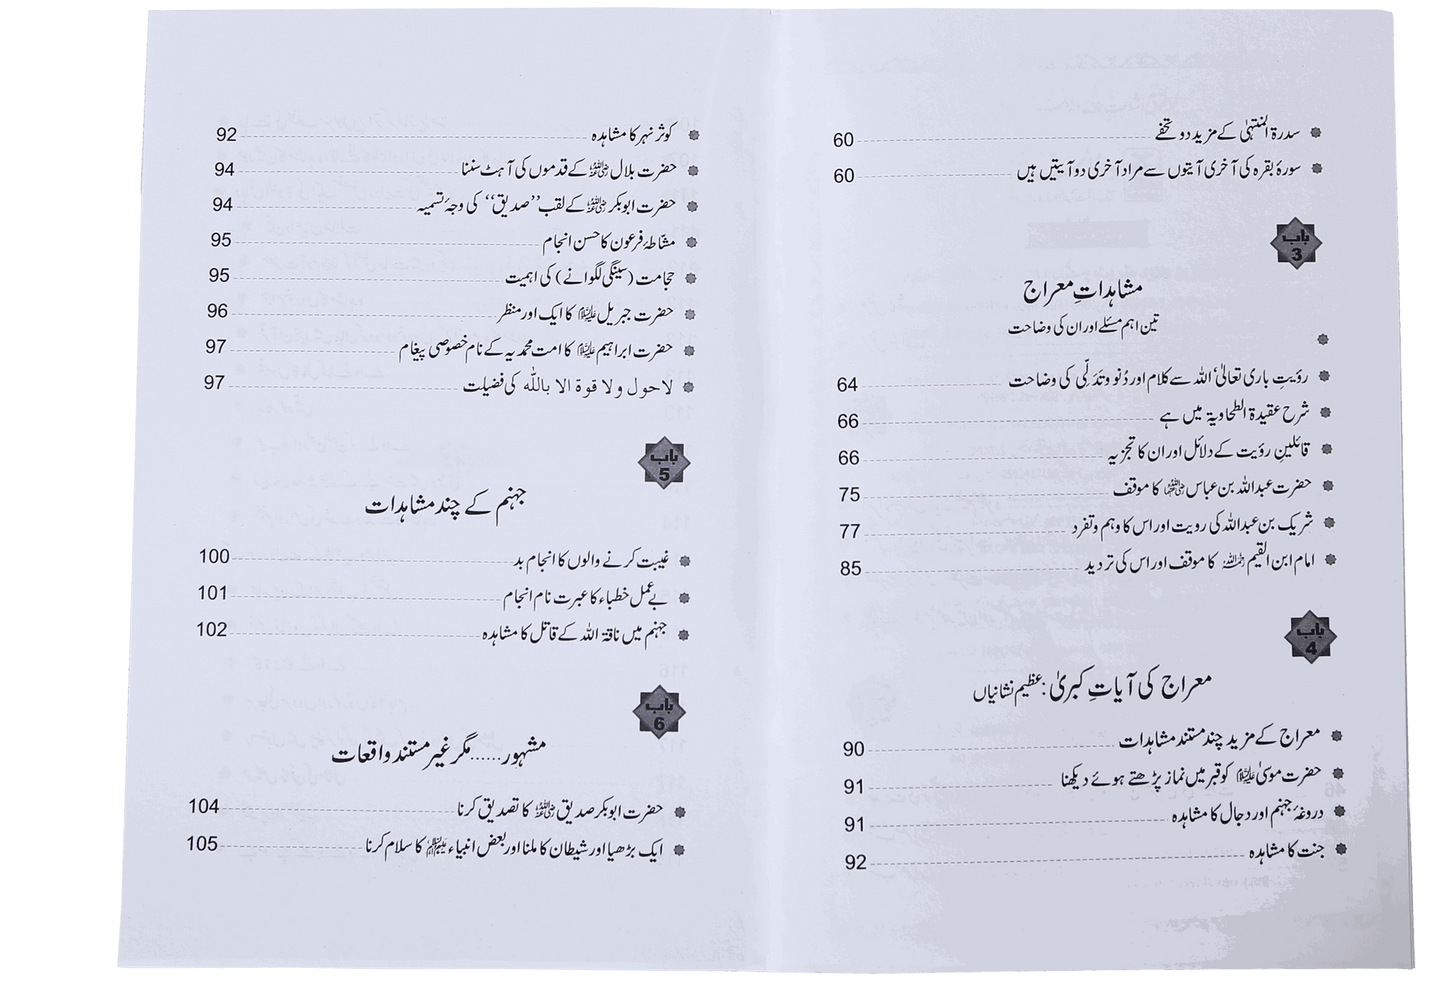 سدرۃ المنتہیٰ کے مزید دو تحفے 60
سورۂ بقرہ کی آخری آیتوں سے مراد آخری دو آیتیں ہیں 60
باب 3
مشاہداتِ معراج
تین اہم مسئلے اور ان کی وضاحت
رؤیتِ باری تعالیٰ‘ اللہ سے کلام اور دُنو وتَدَلّی کی وضاحت 64
شرح عقیدۃ الطحاویۃ میں ہے 66
قائلینِ رؤیت کے دلائل اور ان کا تجزیہ 66
حضرت عبداللہ بن عباس رضی اللہ عنہما کا موقف 75
شریک بن عبداللہ کی رویت اور اس کا وہم وتفرد 77
امام ابن القیم رحمہ اللہ کا موقف اور اس کی تردید 85
باب 4
معراج کی آیاتِ کبریٰ: عظیم نشانیاں
معراج کے مزید چند مستند مشاہدات 90
حضرت موسیٰ علیہ السلام کو قبر میں نماز پڑھتے ہوئے دیکھنا 91
دروغۂ جہنم اور دجال کا مشاہدہ 91
جنت کا مشاہدہ 92
کوثر نہر کا مشاہدہ 92
حضرت بلال رضی اللہ عنہ کے قدموں کی آہٹ سننا 94
حضرت ابوبکر رضی اللہ عنہ کے لقب ’’صدیق‘‘ کی وجۂ تسمیہ 94
مشّاطۂ فرعون کا حسن انجام 95
حجامت (سینگی لگوانے) کی اہمیت 95
حضرت جبریل علیہ السلام کا ایک اور منظر 96
حضرت ابراہیم علیہ السلام کا امت محمدیہ کے نام خصوصی پیغام 97
لاحول ولا قوۃ الا باللّٰہ کی فضیلت 97
باب 5
جہنم کے چند مشاہدات
غیبت کرنے والوں کا انجام بد 100
بےعمل خطباء کا عبرت نام انجام 101
جہنم میں ناقۃ اللہ کے قاتل کا مشاہدہ 102
باب 6
مشہور......مگر غیر مستند واقعات
حضرت ابوبکر صدیق رضی اللہ عنہ کا تصدیق کرنا 104
ایک بڑھیا اور شیطان کا ملنا اور بعض انبیاء علیہم السلام کا سلام کرنا 105